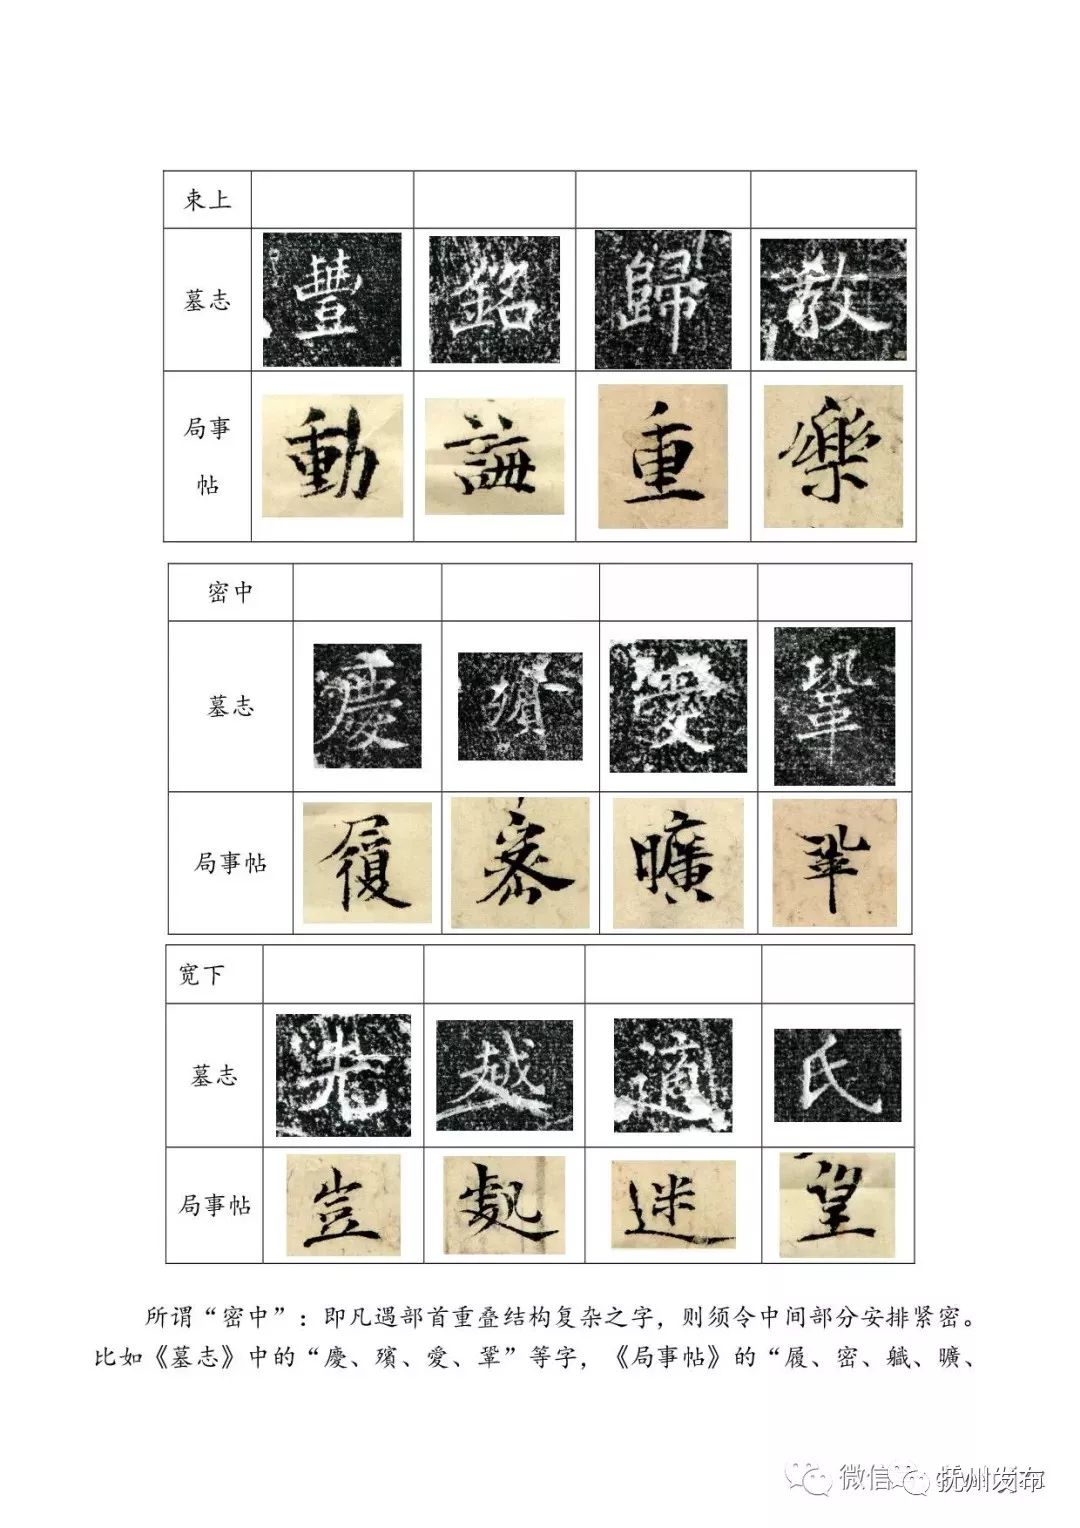 束上
墓志 豐 銘 歸 教
局事
帖
動 謙 重 樂
密中
墓志 慶 殯 愛 鞏
局事帖 履 密 曠 鞏
宽下
墓志 先 越 適 氏
局事帖 豈 處 迷 望
所谓“密中”：即凡遇部首重叠结构复杂之字，则须令中间部分安排紧密。
比如《墓志》中的“慶、殯、愛、鞏”等字，《局事帖》的“履、密、軄、曠、
微信
抚州发布